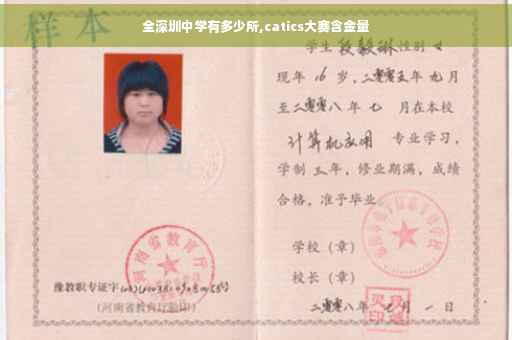 全深圳中学有多少所,catics大赛含金量
样本
学生 段毅琳 性别 女
现年 16 岁，二零零五年 九 月
至二零零八年 七 月在本校
计算机应用 专业学习，
学制 三 年，修业期满，成绩
合格，准予毕业。
学校（章）
校长（章）
二零零八年 七 月 一 日
河南省教育厅
豫教职专证字
(河南省教育厅验印)